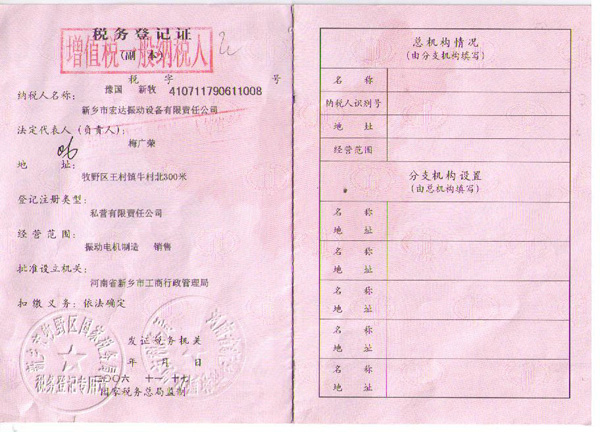 税务登记证
(副 本)
增值税一般纳税人
税 字 号
豫国 新牧 410711790611008
纳税人名称:
新乡市宏达振动设备有限责任公司
法定代表人(负责人):
梅广荣
地 址:
牧野区王村镇牛村北300米
登记注册类型:
私营有限责任公司
经 营 范 围:
振动电机制造 销售
批准设立机关:
河南省新乡市工商行政管理局
扣 缴 义 务: 依法确定
发 证 税 务 机 关
年 月 日
二〇〇六 十一 十六
国家税务总局监制
税务登记专用章
总机构情况
(由分支机构填写)
名 称
纳税人识别号
地 址
经营范围
分支机构设置
(由总机构填写)
名 称
地 址
名 称
地 址
名 称
地 址
名 称
地 址
名 称
地 址